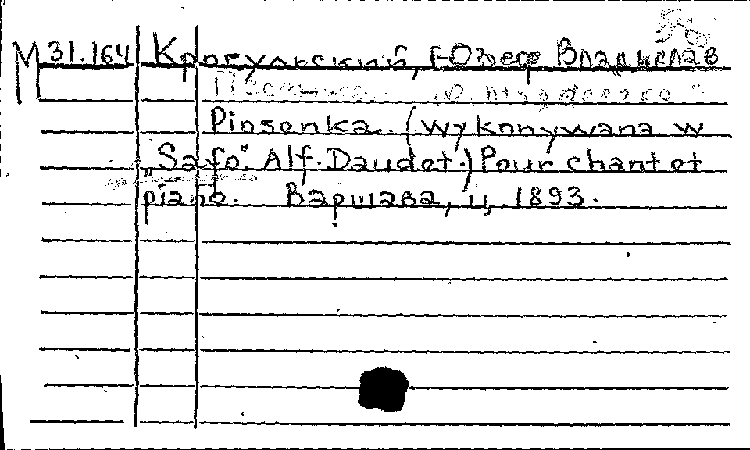 М 31.164 Крогульский, Юзеф Владислав
Piosenka. (Wykonywana w
„Safo". Alf. Daudet.) Pour chant et
piano. Варшава, ц. 1893.